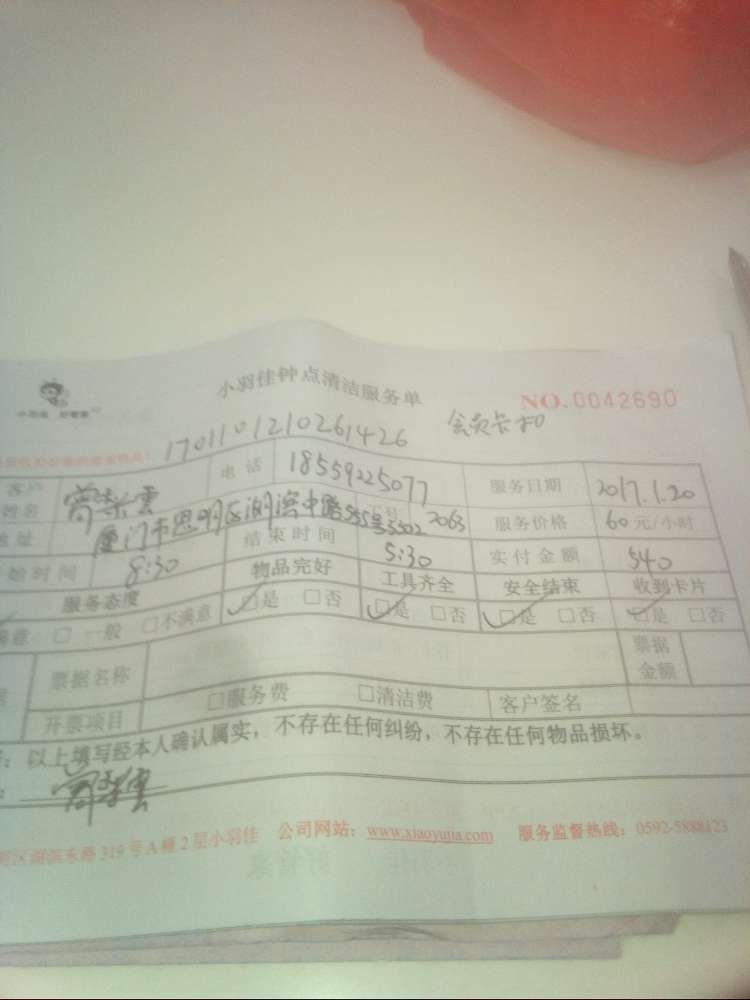 小羽佳钟点清洁服务单
NO.0042690
小羽佳 好管家
1701101210261426 会员卡扣
客户姓名 電 话 18559225077 服务日期 2017.1.20
地址 厦门市思明区湖滨中路 号 2063 服务价格 60元/小时
始时间 8:30 结束时间 5:30 实付金额 540
服务态度 物品完好 工具齐全 安全结束 收到卡片
满意 □ 一般 □不满意 □是 □否 □是 □否 □是 □否 □是 □否
票据名称 票据金额
开票项目 □服务费 □清洁费 客户签名
：以上填写经本人确认属实，不存在任何纠纷，不存在任何物品损坏。
区湖滨东路319号A幢2层小羽佳 公司网站：www.xiaoyujia.com 服务监督热线：0592-5888123